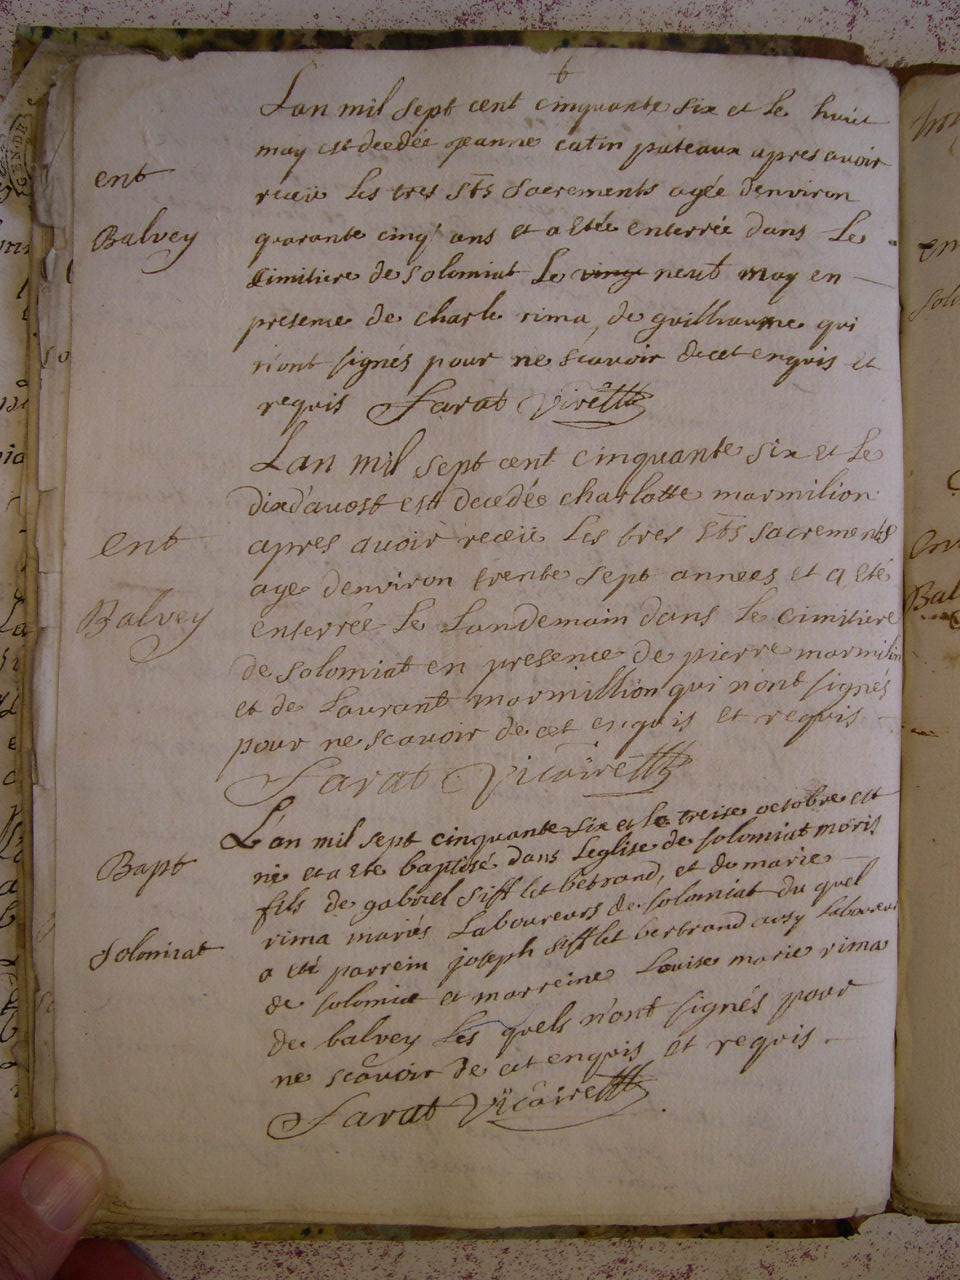 6
Lan mil sept cent cinquante six et Le huit
may est decedée jeanne catin puteaux apres avoir
receü Les tres Sts Sacrements agée denviron
ent
quarante cinq ans et a etée enterrée dans Le
Balvey
cimitiere de Solomiat Le vingt neuf may en
presence de charle rima, de guillaume qui
n'ont signés pour ne scavoir de cet enquis et
requis Sarat Vire
Lan mil sept cent cinquante six et Le
dix d'avost est decedée charlotte marmilion
ent
apres avoir receü Les tres Sts sacrements
age denviron trente sept annees et a eté
Balvey
enterrée Le Landemain dans Le cimitiere
de Solomiat en presence de pierre marmilion
et de Laurant marmillion qui n'ont signés
pour ne scavoir de cet enquis et requis
Sarat Vicaire
L'an mil sept cinquante six et le treise octobre est
Bapt
né et a ete baptisé dans Leglise de Solomiat moris
fils de gabriel Sifflet betrand, et de marie
rima mariés Laboureurs de Solomiat du quel
Solomiat
a eté parrein joseph Sifflet bertrand aussy Laboureur
de Solomiat et marreine Louise marie rima
de balvey Les quels n'ont signés pour
ne scavoir de cet enquis et requis
Sarat Vicaire